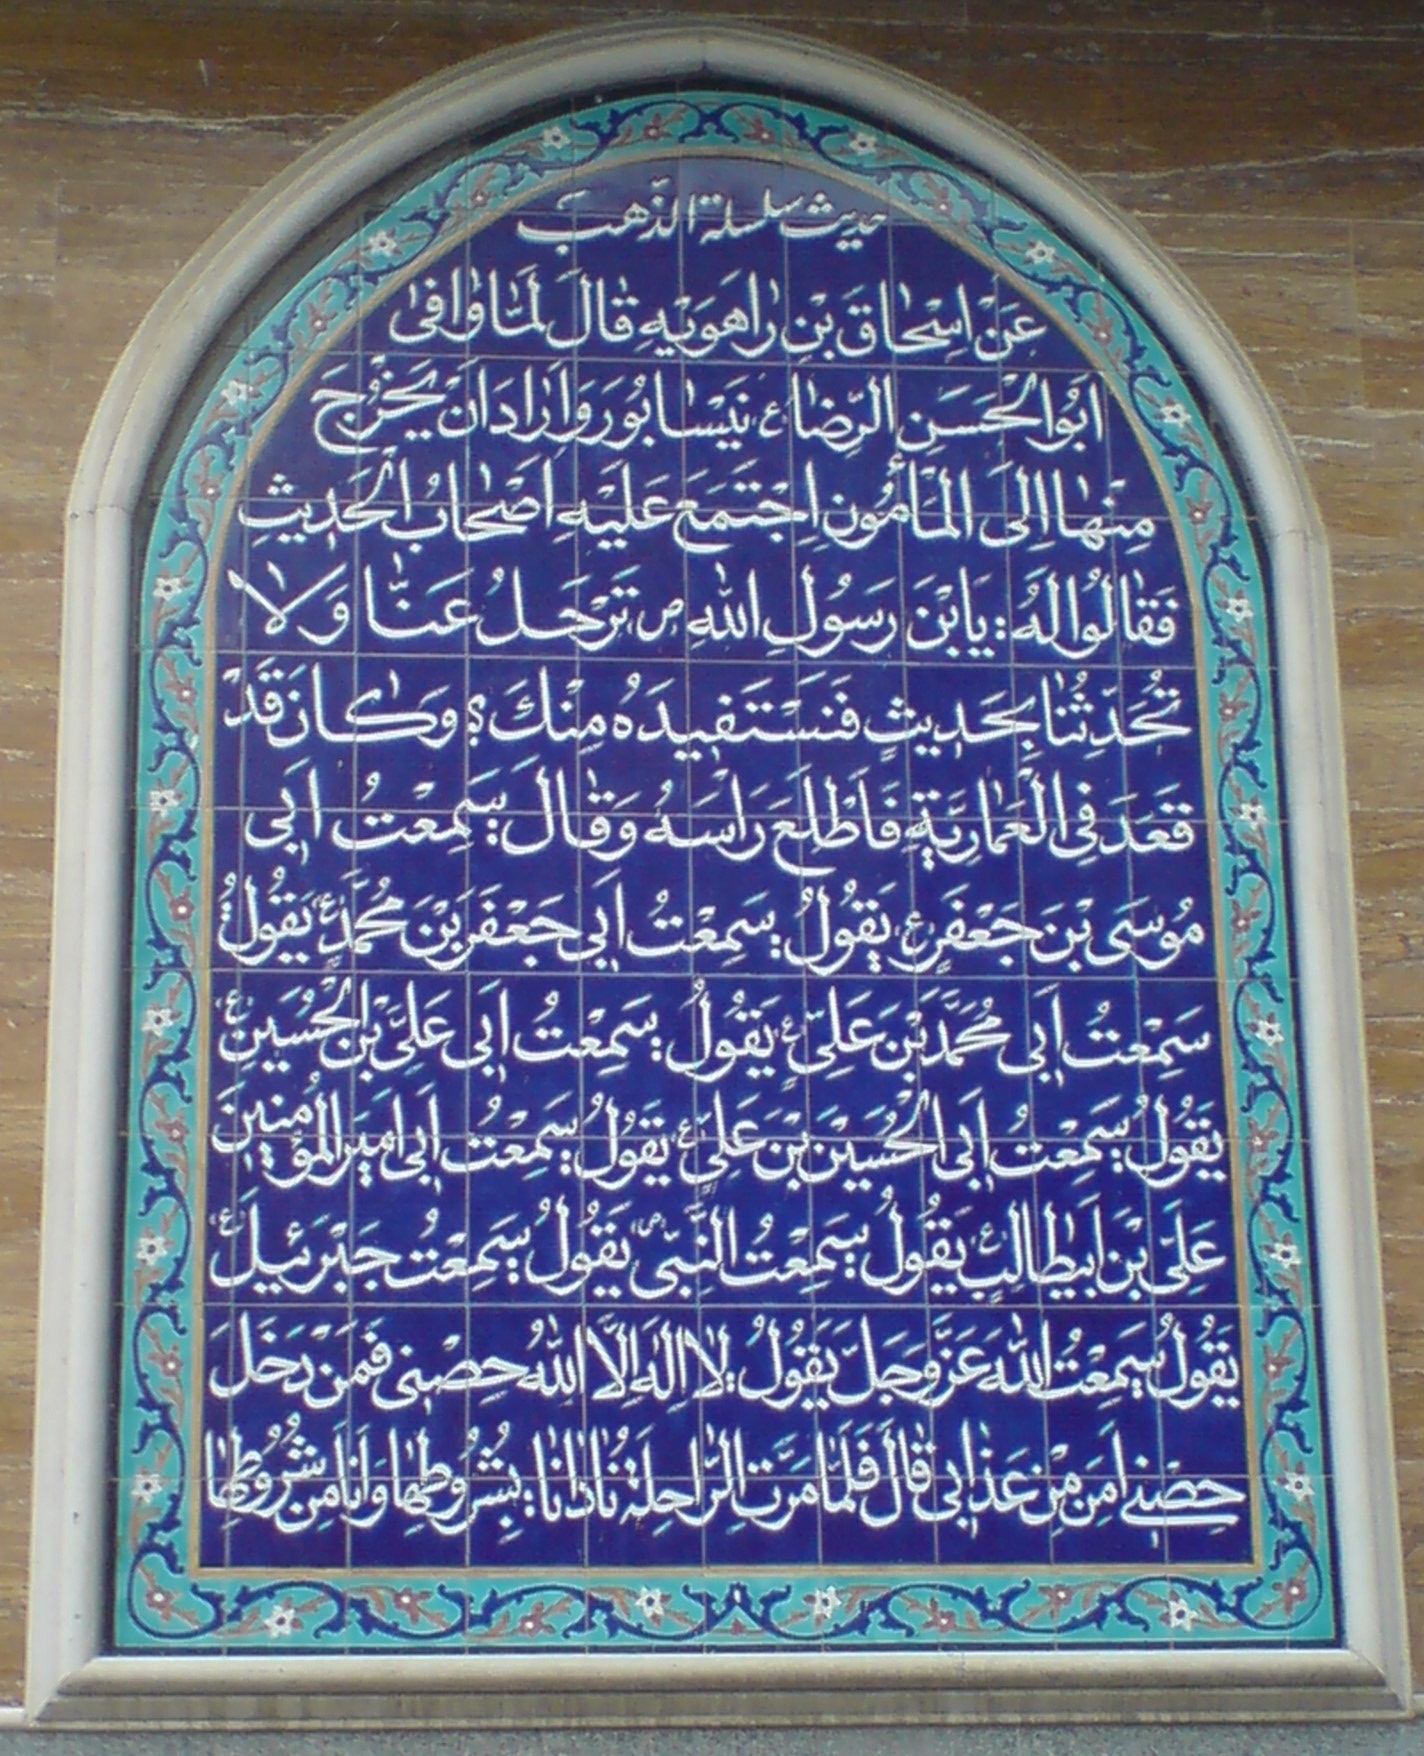 حديث سلسلة الذّهب
عَنْ اِسْحٰاقَ بْنِ رٰاهَوَيْهِ قٰالَ لَمّٰا وٰافىٰ
اَبُوالْحَسَنِ الرِّضٰا ع نَيْسٰابُورَ وَاَرٰادَ اَنْ يَخْرُجَ
مِنْهٰا اِلَى الْمَأْمُونِ اِجْتَمَعَ عَلَيْهِ اَصْحٰابُ الْحَديثِ
فَقٰالُوا لَهُ : يَابْنَ رَسُولِ اللهِ ص تَرْحَلُ عَنّٰا وَلاٰ
تُحَدِّثُنٰا بِحَديثٍ فَنَسْتَفيدَهُ مِنْكَ ؟ وَكٰانَ قَدْ
قَعَدَ فِى الْعَمّٰارِيَّةِ فَاَطْلَعَ رَاْسَهُ وَقٰالَ : سَمِعْتُ اَبى
مُوسَى بْنَ جَعْفَرٍ ع يَقُولُ : سَمِعْتُ اَبى جَعْفَرَ بْنَ مُحَمَّدٍ ع يَقُولُ :
سَمِعْتُ اَبى مُحَمَّدَ بْنَ عَلِىٍّ ع يَقُولُ : سَمِعْتُ اَبى عَلِىَّ بْنَ الْحُسَيْنِ ع
يَقُولُ : سَمِعْتُ اَبِى الْحُسَيْنَ بْنَ عَلِىٍّ ع يَقُولُ : سَمِعْتُ اَبى اَميرَ الْمُؤْمِنينَ
عَلِىَّ بْنَ اَبيطالِبٍ ع يَقُولُ : سَمِعْتُ النَّبِىَّ ص يَقُولُ : سَمِعْتُ جَبْرَئيلَ ع
يَقُولُ : سَمِعْتُ اللهَ عَزَّوَجَلَّ يَقُولُ : لاٰ اِلٰهَ اِلَّا اللهُ حِصْنى فَمَنْ دَخَلَ
حِصْنى اَمِنَ مِنْ عَذٰابى قٰالَ فَلَمّٰا مَرَّتِ الرّٰاحِلَةُ نٰادٰانٰا : بِشُرُوطِهٰا وَاَنَا مِنْ شُرُوطِهٰا